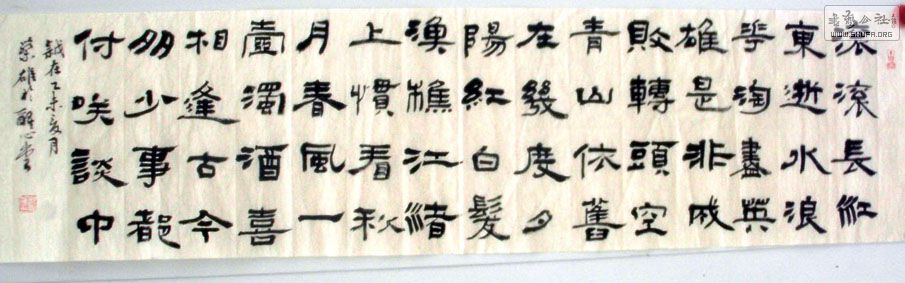 滚滚長江
東逝水浪
花淘盡英
雄是非成
敗轉頭空
青山依舊
在幾度夕
陽紅白髮
漁樵江渚
上慣看秋
月春風一
壺濁酒喜
相逢古今
多少事都
付笑談中
歲在乙未夏月
雄於醒心堂
书艺公社
WWW.SHUFA.ORG